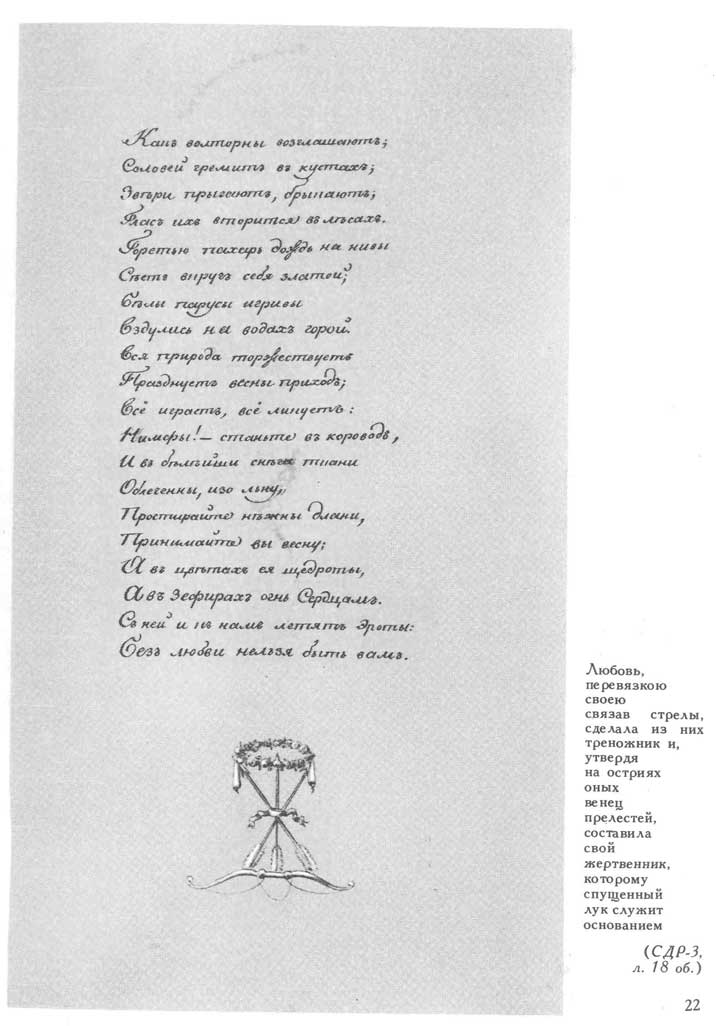 Какъ волторны возглашаютъ;
Соловей гремитъ въ кустахъ;
Звѣри прыгаютъ, брыкаютъ;
Гласъ ихъ вторится въ лѣсахъ.
Горстью пахарь дождь на нивы
Сѣетъ вкругъ себя златой;
Бѣлы парусы игривы
Вздулись на водахъ горой.
Вся природа торжествуетъ
Празднуетъ весны приходъ;
Всё играетъ, всё ликуетъ:
Нимфы! — станьте въ короводъ,
И въ бѣлѣйши снѣга ткани
Облеченны, изо льну,
Простирайте нѣжны длани,
Принимайте вы весну;
А въ цвѣтахъ ея щедроты,
А въ Зефирахъ огнь Сердцамъ.
Съ ней и къ намъ летятъ Эроты:
Безъ любви нельзя быть вамъ.
Любовь,
перевязкою
своею
связав стрелы,
сделала из них
треножник и,
утвердя
на остриях
оных
венец
прелестей,
составила
свой
жертвенник,
которому
спущенный
лук служит
основанием
(СДР-3,
л. 18 об.)
22